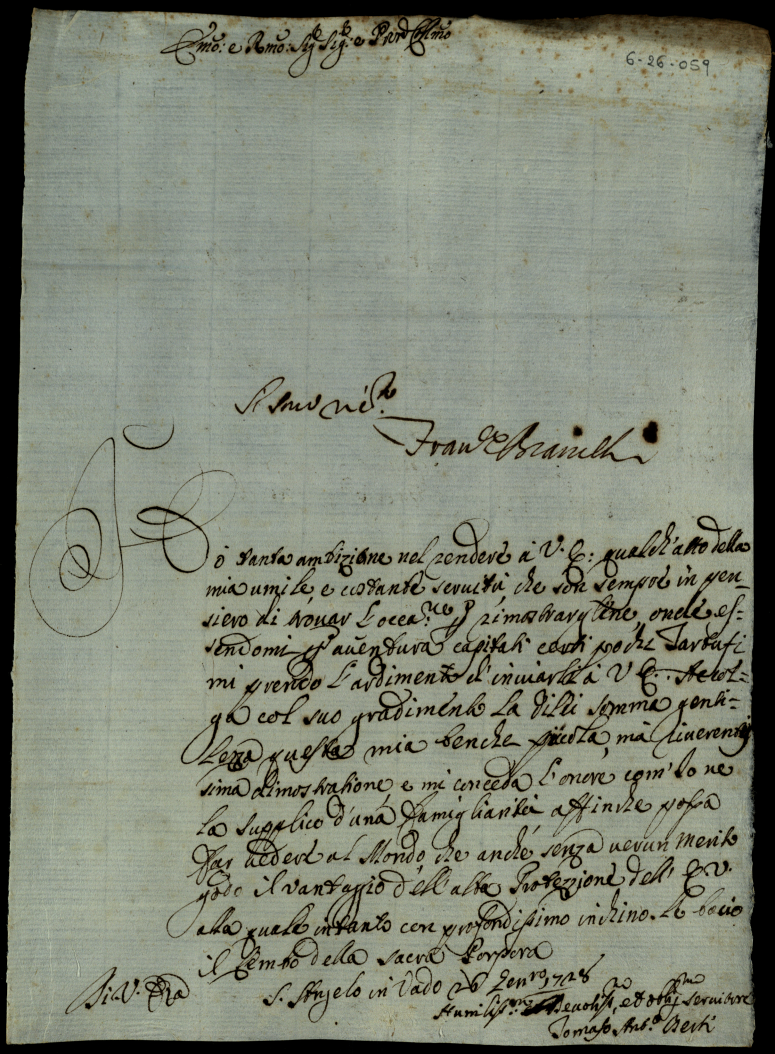 Emo: e Rmo: Sigr Sigr: e Pnrd Colmo
6-26-059
Franco
Hò tanta ambizione nel rendere à V. E: qualch'atto della
mia umile, e costante servitù, che son sempre in pen-
siero di trovar l'occa.ne p rimostrargliene, onde es-
sendomi p aventura capitati certi pochi Tartufi
mi prendo l'ardimento d'inviarli à V. E. Accol-
ga col suo gradimento la di lei somma genti-
lezza questa mia benche picola, mà riverentis
sima dimostratione, e mi conceda l'onore com'Io ne
la supplico d'una famigliarità affinche possa
far vedere al Mondo, che anche senza verun merito
godo il vantaggio dell'alta Protezzione dell' E. V.
alla quale intanto con profondissimo inchino le bacio
il Lembo della sacra Porpora
Di V. Eza
S. Angelo in Vado 26 Genro 1728
Humilissmo Devotisso, et obligmo servitore
Tomaso Anto Berti